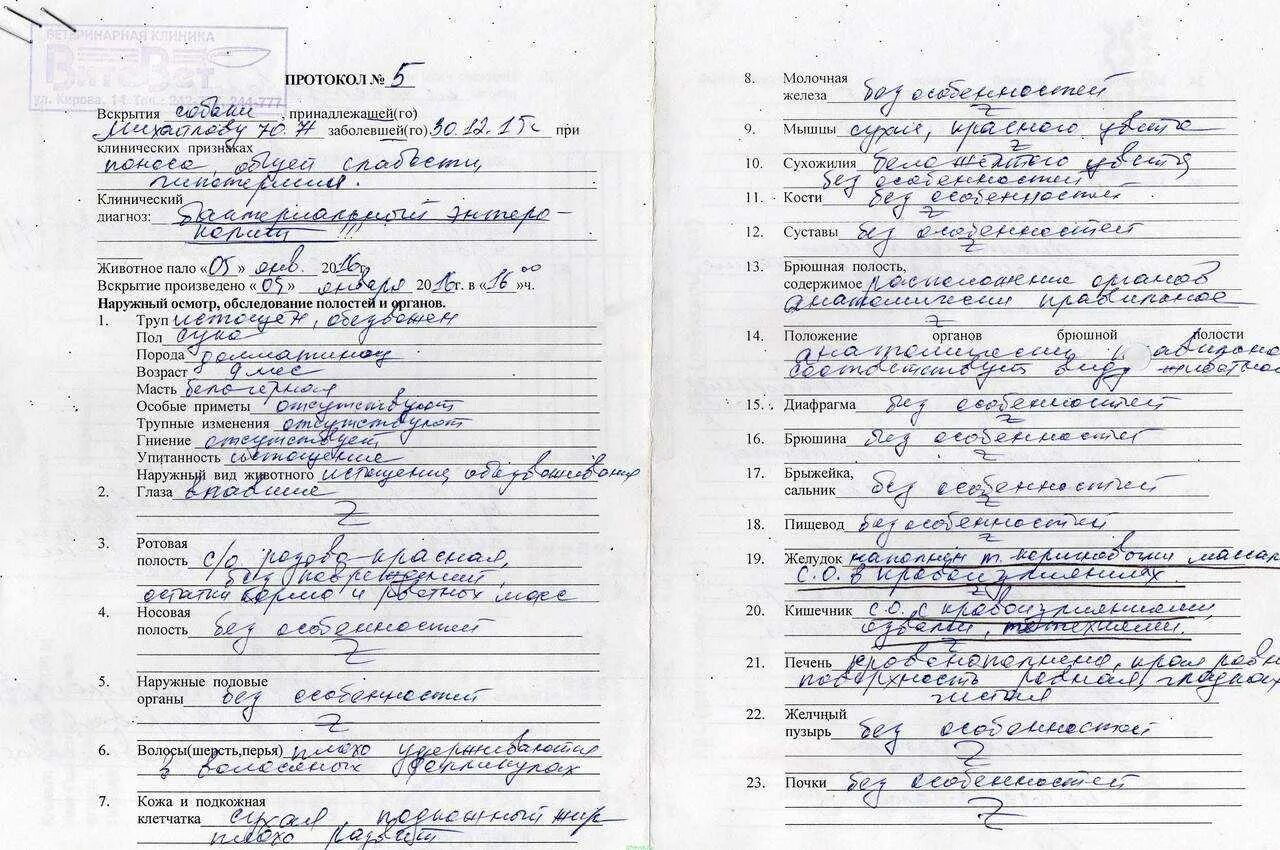 ВЕТЕРИНАРНАЯ КЛИНИКА
ул. Кирова, 14 Тел.: 244-777
ПРОТОКОЛ № 5
Вскрытия собаки, принадлежащей(го)
Михайлову Ю.Н заболевшей(го) 30.12.15г при
клинических признаках
поноса, общей слабости,
гипотермия.
Клинический
диагноз: Бактериальный энтеро-
колит !!!
Животное пало «05» янв. 2016г
Вскрытие произведено «05» января 2016г. в «16 00»ч.
Наружный осмотр, обследование полостей и органов.
1. Труп истощен, обезвожен
Пол сука
Порода долматинец
Возраст 9 мес
Масть белочерная
Особые приметы отсутствуют
Трупные изменения отсутствуют
Гниение отсутствует
Упитанность истощение
Наружный вид животного истощение, обезвоживание
2. Глаза впавшие
3. Ротовая
полость с/о розово-красная,
без повреждений,
остатки корма и рвотных масс
4. Носовая
полость без особенностей
5. Наружные половые
органы без особенностей
6. Волосы(шерсть,перья) плохо удерживаются
в волосяных фолликулах
7. Кожа и подкожная
клетчатка сухая, подкожный жир
плохо развит
8. Молочная
железа без особенностей
9. Мышцы сухие, красного цвета
10. Сухожилия беложелтого цвета
без особенностей
11. Кости без особенностей
12. Суставы без особенностей
13. Брюшная полость,
содержимое расположение органов
анатомически правильное
14. Положение органов брюшной полости
анатомически
соответствует виду животного
15. Диафрагма без особенностей
16. Брюшина без особенностей
17. Брыжейка,
сальник без особенностей
18. Пищевод без особенностей
19. Желудок наполнен т. коричневыми массами
С.О. в кровоизлияниях
20. Кишечник С.О. с кровоизлияниями,
21. Печень кровенаполнена, края ровные
поверхность ровная, гладкая
чистая
22. Желчный
пузырь без особенностей
23. Почки без особенностей